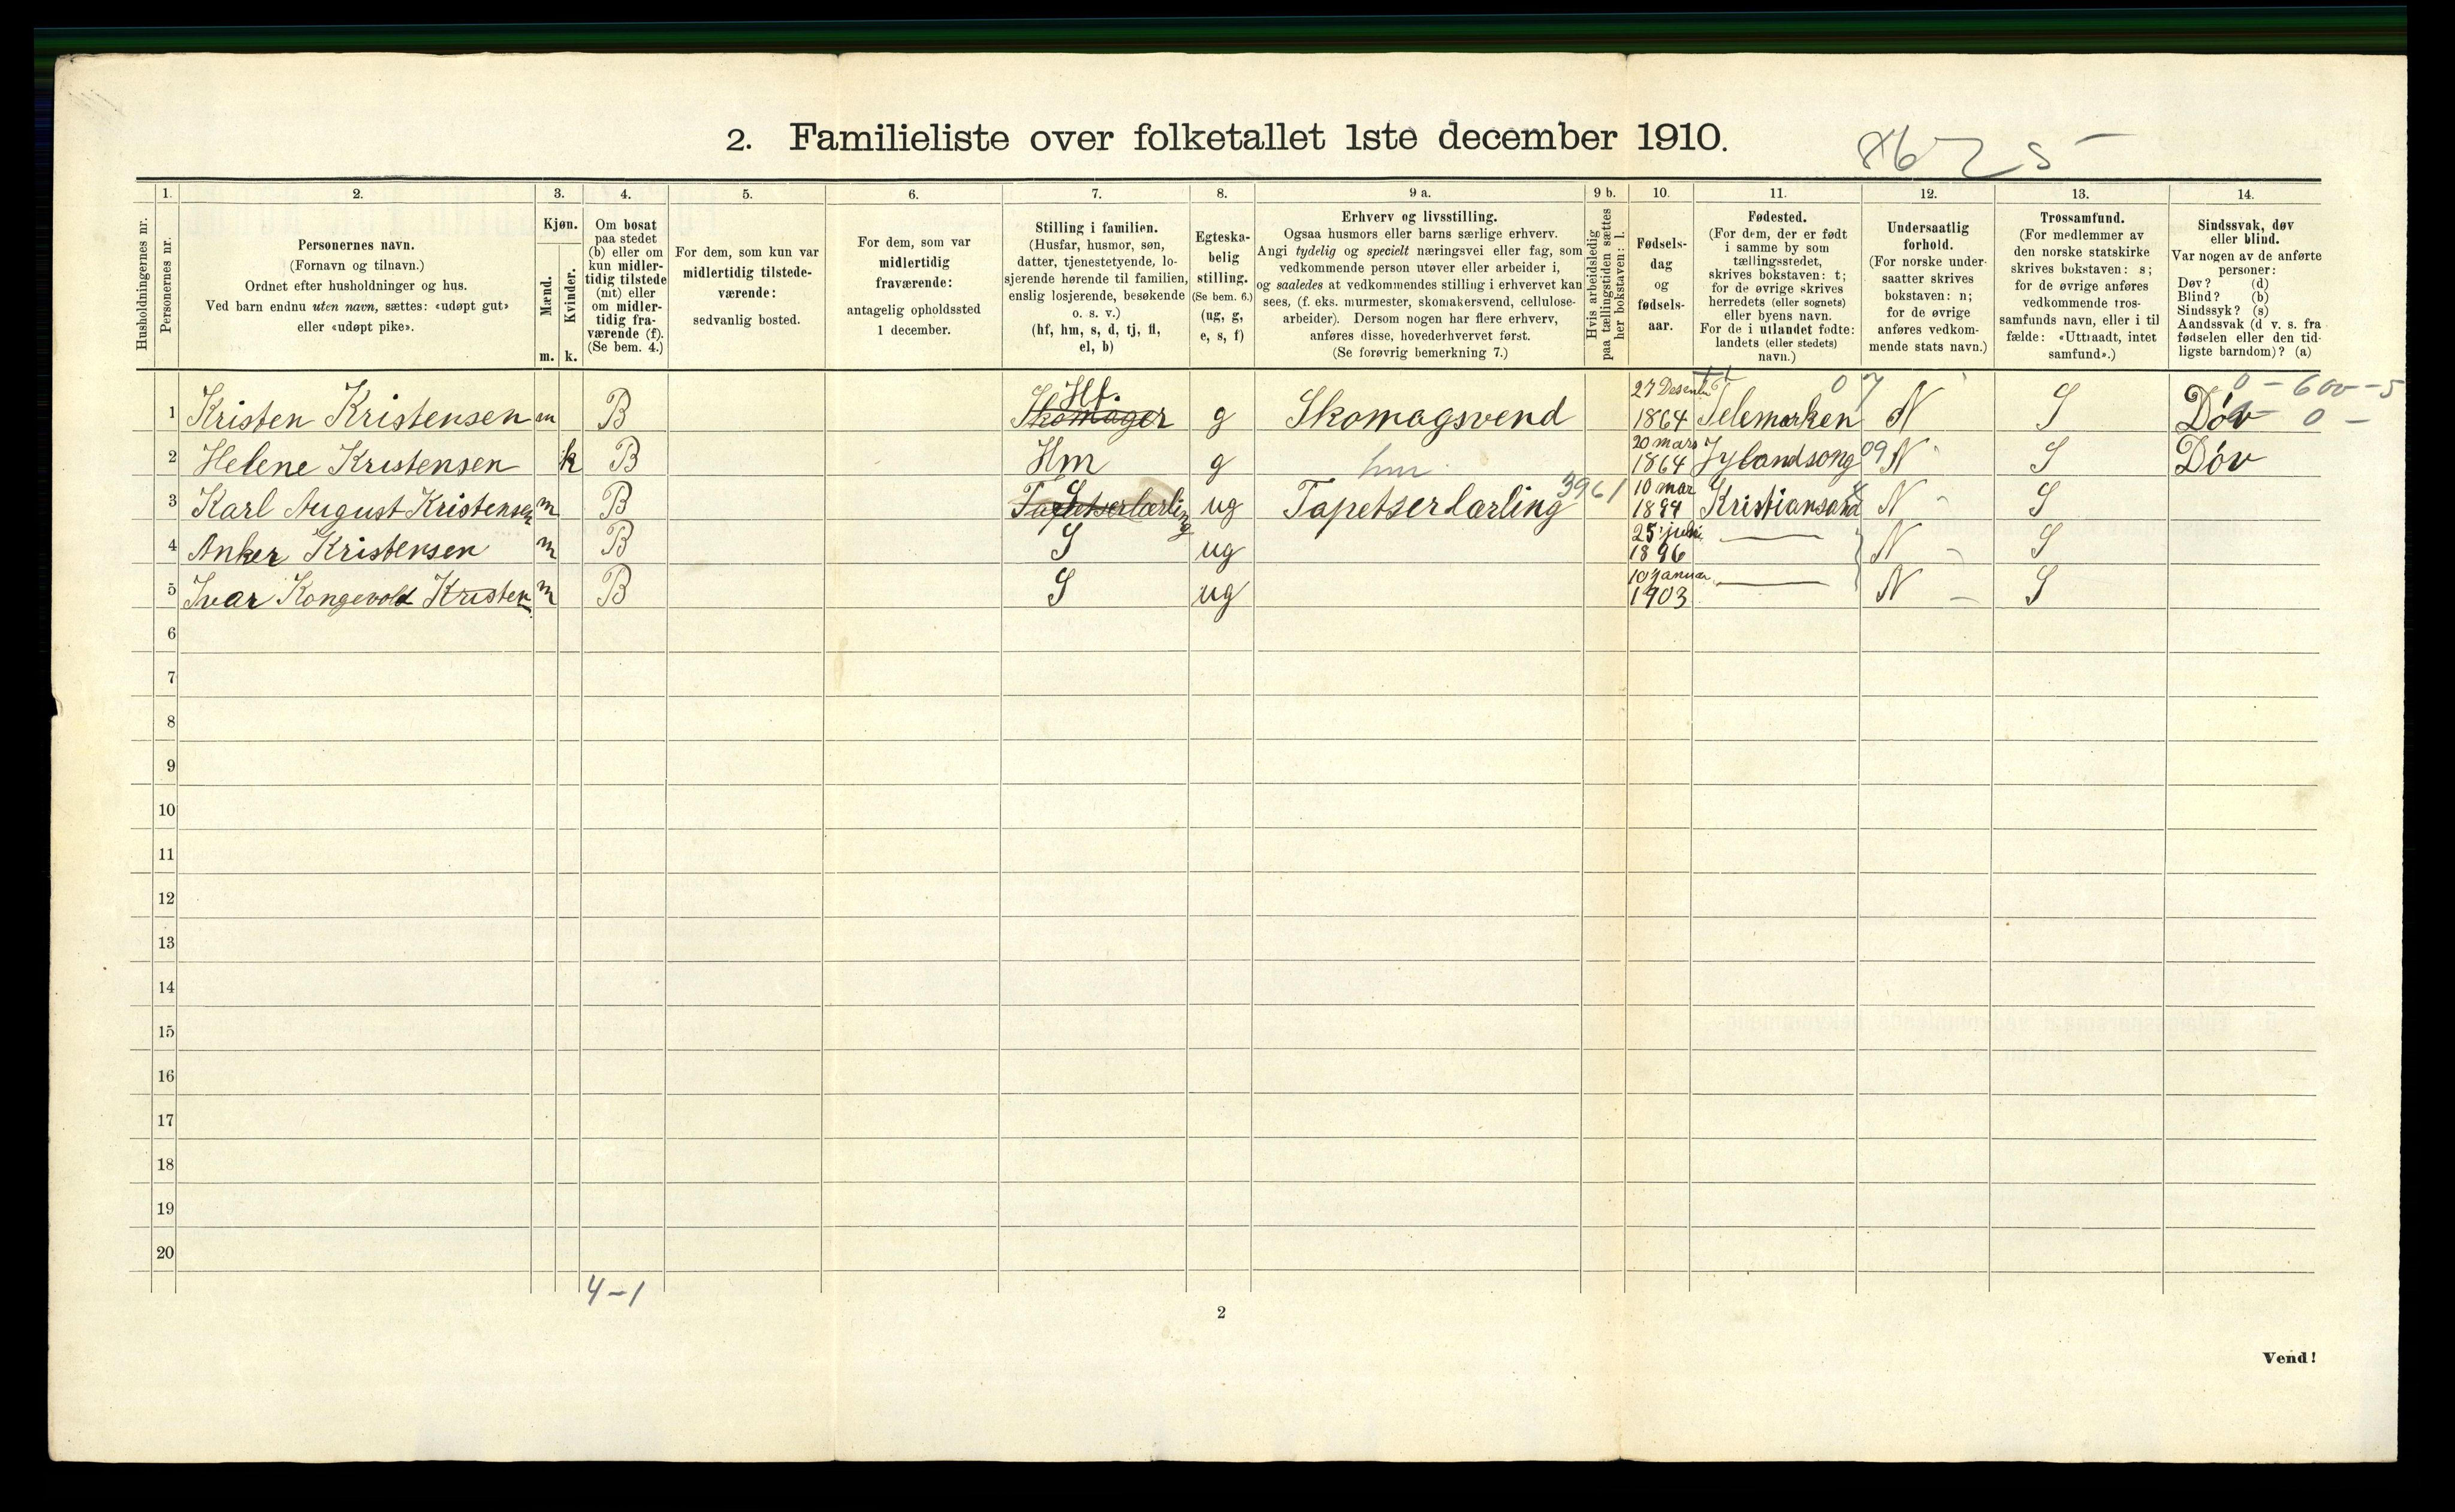 2. Familieliste over folketallet 1ste december 1910.
8625 -
Husholdningernes nr.
1.
Personernes nr.
2.
Personernes navn.
(Fornavn og tilnavn.)
Ordnet efter husholdninger og hus.
Ved barn endnu uten navn, sættes: «udøpt gut»
eller «udøpt pike».
3.
Kjøn.
Mænd.
Kvinder.
m. k.
4.
Om bosat
paa stedet
(b) eller om
kun midler-
tidig tilstede
(mt) eller
om midler-
tidig fra-
værende (f).
(Se bem. 4.)
5.
For dem, som kun var
midlertidig tilstede-
værende:
sedvanlig bosted.
6.
For dem, som var
midlertidig
fraværende:
antagelig opholdssted
1 december.
7.
Stilling i familien.
(Husfar, husmor, søn,
datter, tjenestetyende, lo-
sjerende hørende til familien,
enslig losjerende, besøkende
o. s. v.)
(hf, hm, s, d, tj, fl,
el, b)
8.
Egteska-
belig
stilling.
(Se bem. 6.)
(ug, g,
e, s, f)
9 a.
Erhverv og livsstilling.
Ogsaa husmors eller barns særlige erhverv.
Angi tydelig og specielt næringsvei eller fag, som
vedkommende person utøver eller arbeider i,
og saaledes at vedkommendes stilling i erhvervet kan
sees, (f. eks. murmester, skomakersvend, cellulose-
arbeider). Dersom nogen har flere erhverv,
anføres disse, hovederhvervet først.
(Se forøvrig bemerkning 7.)
9 b.
Hvis arbeidsledig
paa tællingstiden sættes
her bokstaven: l.
10.
Fødsels-
dag
og
fødsels-
aar.
11.
Fødested.
(For dem, der er født
i samme by som
tællingsstedet,
skrives bokstaven: t;
for de øvrige skrives
herredets (eller sognets)
eller byens navn.
For de i utlandet fødte:
landets (eller stedets)
navn.)
12.
Undersaatlig
forhold.
(For norske under-
saatter skrives
bokstaven: n;
for de øvrige
anføres vedkom-
mende stats navn.)
13.
Trossamfund.
(For medlemmer av
den norske statskirke
skrives bokstaven: s;
for de øvrige anføres
vedkommende tros-
samfunds navn, eller i til
fælde: «Uttraadt, intet
samfund».)
14.
Sindssvak, døv
eller blind.
Var nogen av de anførte
personer:
Døv? (d)
Blind? (b)
Sindssyk? (s)
Aandssvak (d v. s. fra
fødselen eller den tid-
ligste barndom)? (a)
1 Kristen Kristensen m B Skomager Hf. g Skomagsvend 27 Desember 1864 Telemarken 07 N S Døv 0 - 600 - 5 0 -
2 Helene Kristensen k B Hm g hm 20 mars 1864 Jylandsong 09 N S Døv
3 Karl August Kristensen m B Tapetserlærling S ug Tapetserlærling 3961 10 mar 1894 Kristiansand N S
4 Anker Kristensen m B S ug 25 juli 1896 — N S
5 Ivar Kongevold Kristen m B S ug 10 januar 1903 — N S
6
7
8
9
10
11
12
13
14
15
16
17
18
19
20
4-1
2
Vend!